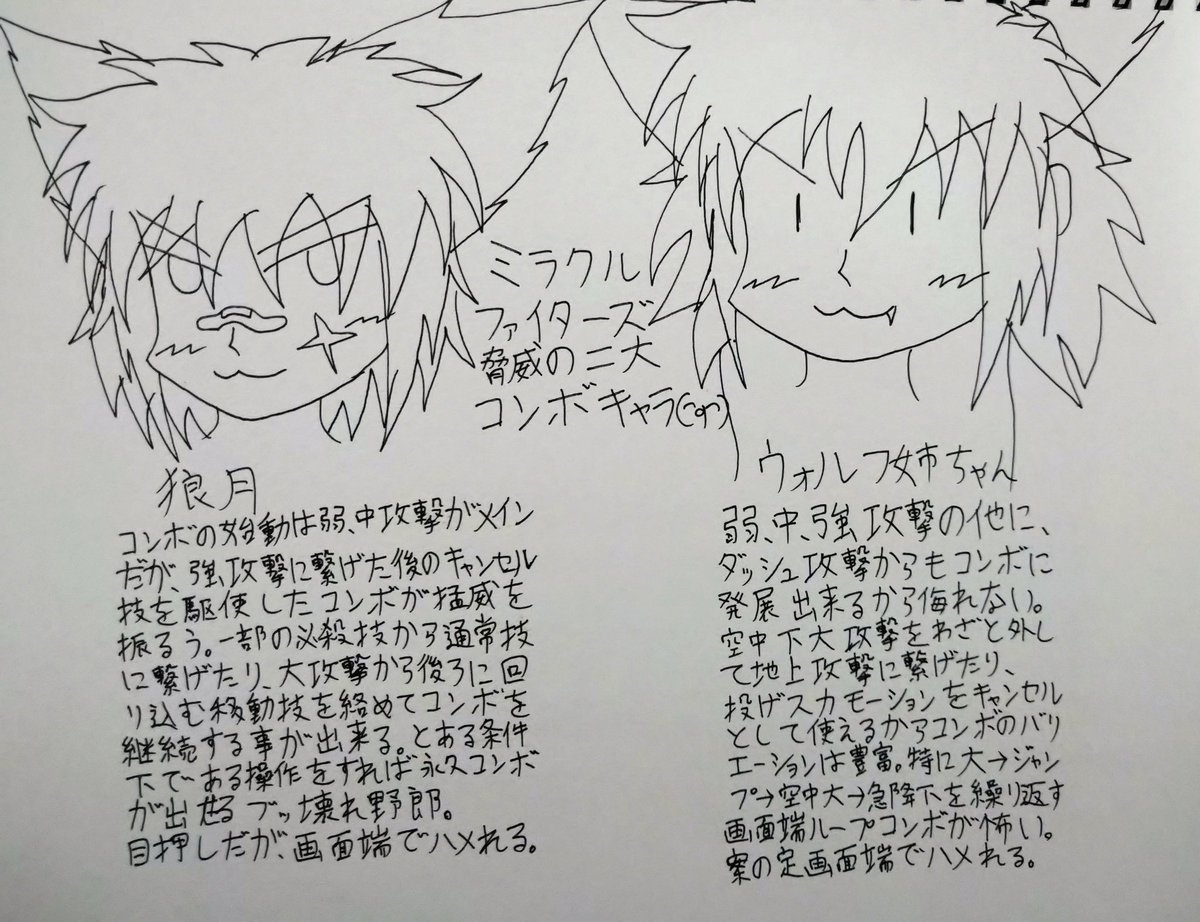 ミラクル
ファイターズ
脅威の二大
コンボキャラ
狼月
コンボの始動は弱、中攻撃がメイン
だが、強攻撃に繋げた後のキャンセル
技を駆使したコンボが猛威を
振るう。一部の必殺技から通常技
に繋げたり、大攻撃から後ろに回
り込む移動技を絡めてコンボを
継続する事が出来る。とある条件
下である操作をすれば永久コンボ
が出せるブッ壊れ野郎。
目押しだが、画面端でハメれる。
ウォルフ姉ちゃん
弱、中、強攻撃の他に、
ダッシュ攻撃からもコンボに
発展出来るから侮れない。
空中下大攻撃をわざと外し
て地上攻撃に繋げたり、
投げスカモーションをキャンセル
として使えるからコンボのバリ
エーションは豊富。特に大→ジャン
プ→空中大→急降下を繰り返す
画面端ループコンボが怖い。
案の定画面端でハメれる。